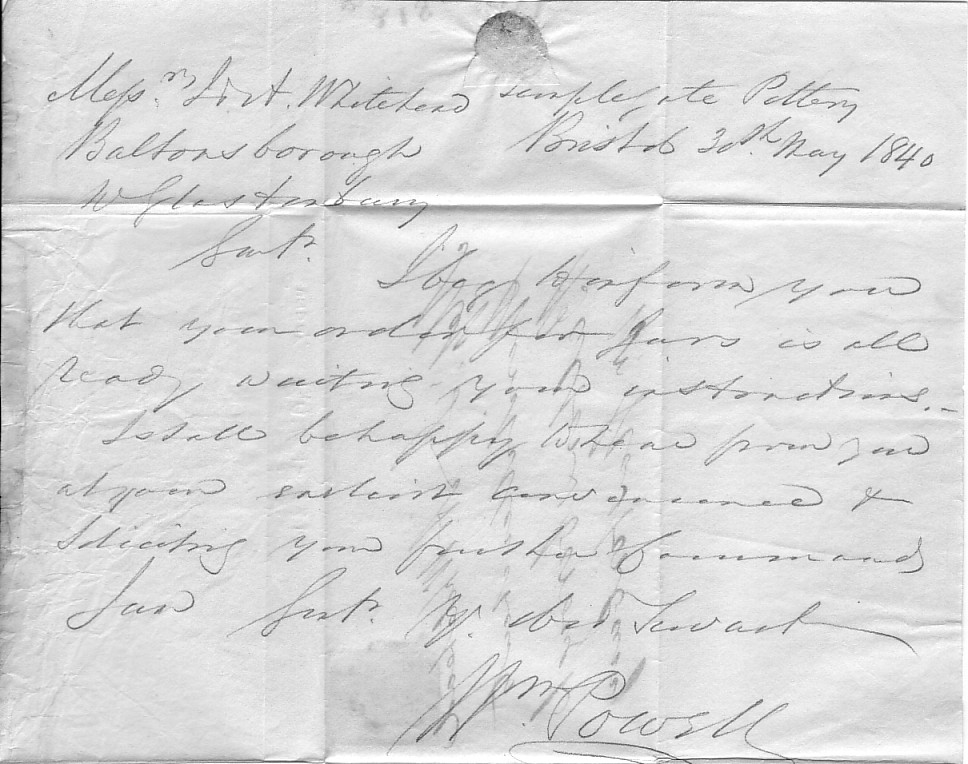 Messrs. J & A. Whitehead Temple gate Pottery
Baltonsborough Bristol 30th. May 1840
Nr Glastenbury
Gentn.
I beg to inform you
that your order for Jars is all
ready waiting your instructions.-
I shall be happy to hear from you
at your earliest convenience &
Soliciting your further Commands
I am Gentn. Yr. Obt. Servant
Wm. Powell